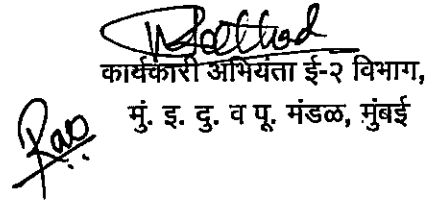 कार्यकारी अभियंता ई-२ विभाग,
मुं. इ. दु. व पू. मंडळ, मुंबई
Rao